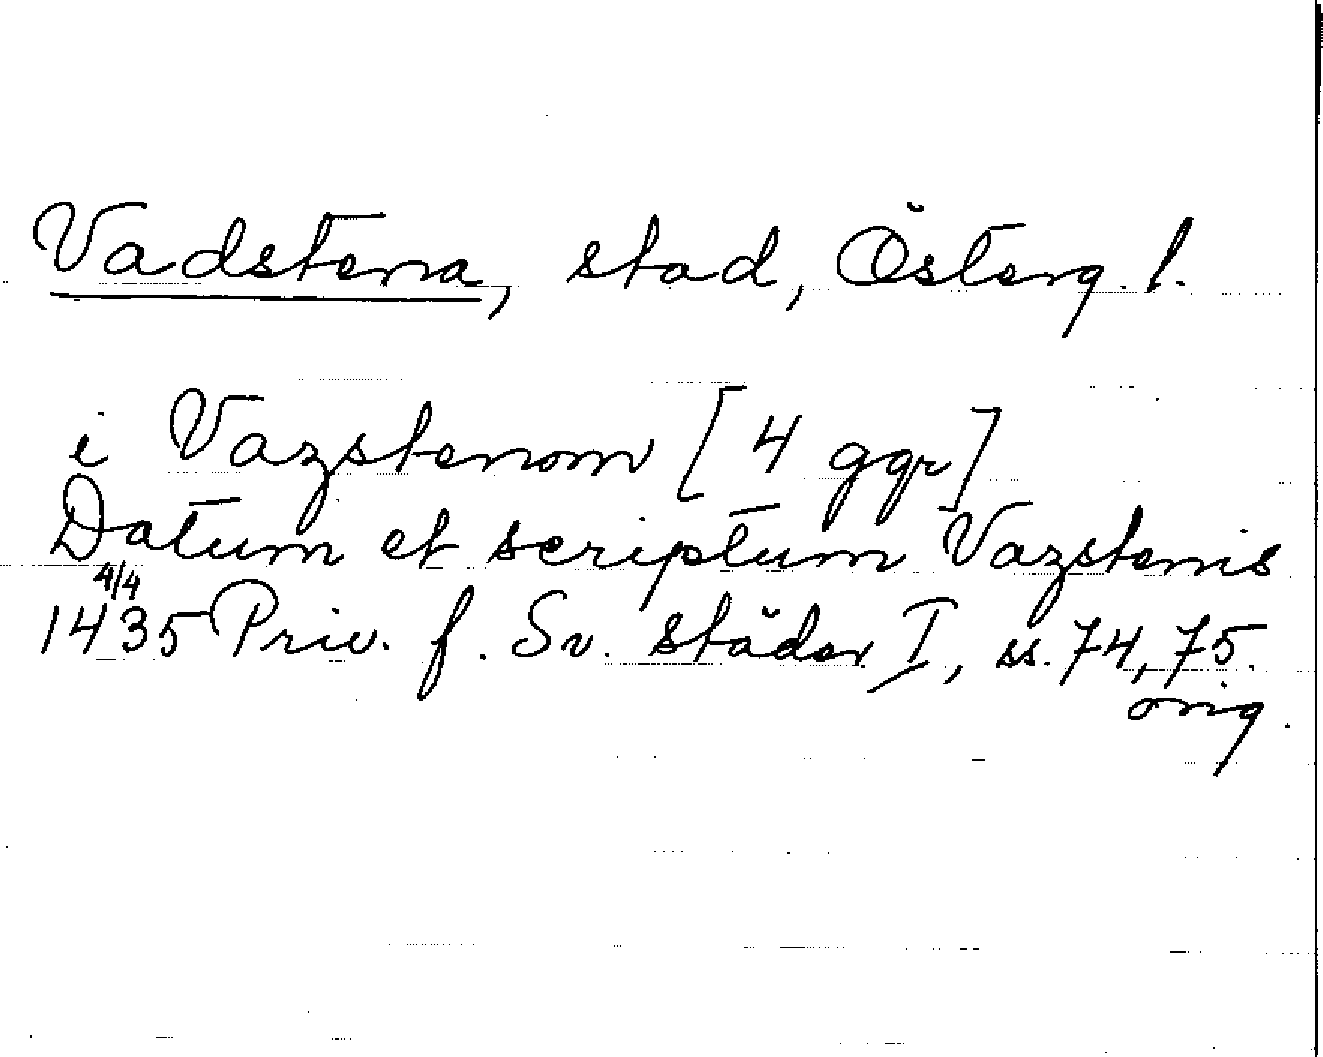 Vadstena, stad, Österg. l.
i Vazstenom [4 ggr]
Datum et scriptum Vazstenis
4/4
1435 Priv. f. Sv. städer I, ss. 74, 75.
orig.